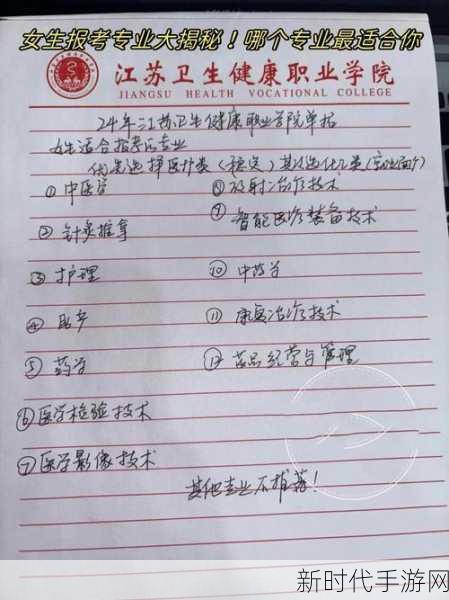 女生报考专业大揭秘！哪个专业最适合你
江苏卫生健康职业学院
JIANGSU HEALTH VOCATIONAL COLLEGE
24年江苏卫生健康职业学院单招
女生适合报考的专业
优先选择医护类（稳定）其次选
①中医学
②针灸推拿
③护理
④助产
⑤药学
⑥医学检验技术
⑦医学影像技术
⑧放射治疗技术
⑨智能医疗装备技术
⑩中药学
⑪康复治疗技术
⑫药品经营与管理
其他专业不推荐！
新时代手游网